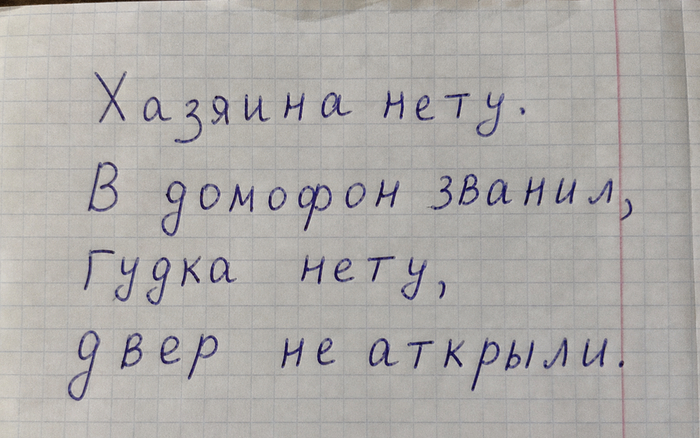 Хазяина нету.
В домофон званил,
Гудка нету,
двер не аткрыли.